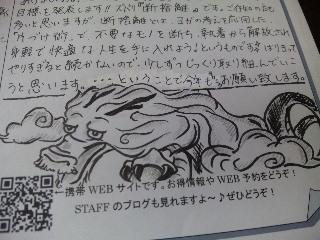 目標を発表します!!ズバリ『断捨離』です。ご存知の方も
多いと思いますが、断捨離とは、ヨガの考えを応用した
"片づけ術"で、不要なモノを断ち、執着から解放され
身軽で快適な人生を手に入れよう!というものです。
やりすぎると続かないので、少しずつじっくり取り組んでいこ
うと思います。 ということで今年も お願い致します。
←携帯WEBサイトです。お得情報やWEB予約をどうぞ!
STAFFのブログも見れますよ~♪ぜひどうぞ!